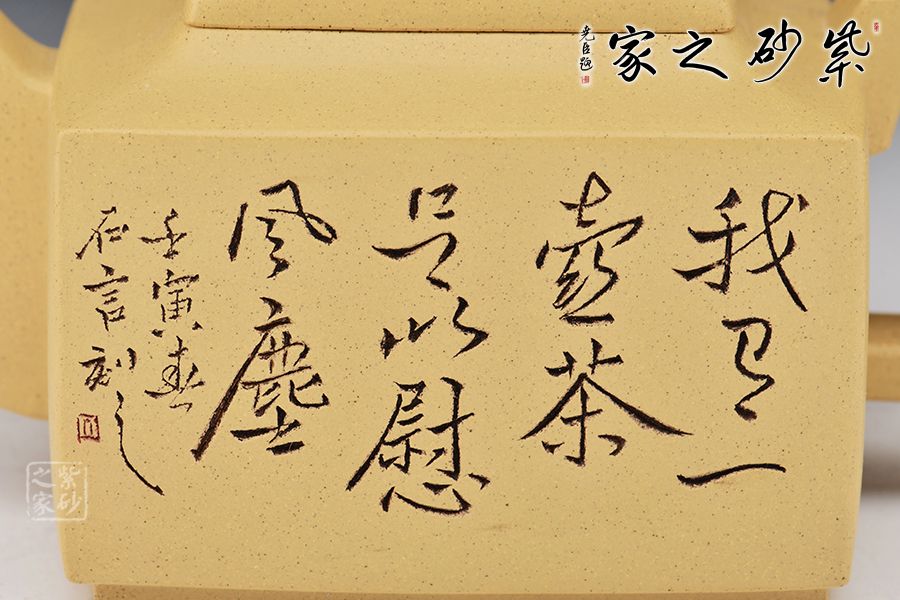 紫砂之家
尧臣题
我有一
壺茶
足以慰
風塵
壬寅春
石言刻之
紫砂
之家